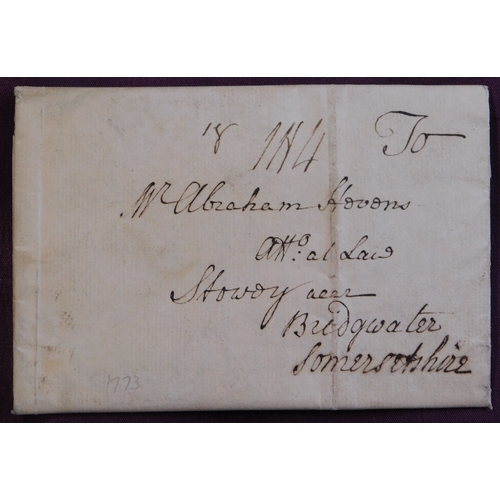 To
Mr Abraham Stevens
Atto. at Law
Stowey near
Bridgwater
Somersetshire
1773